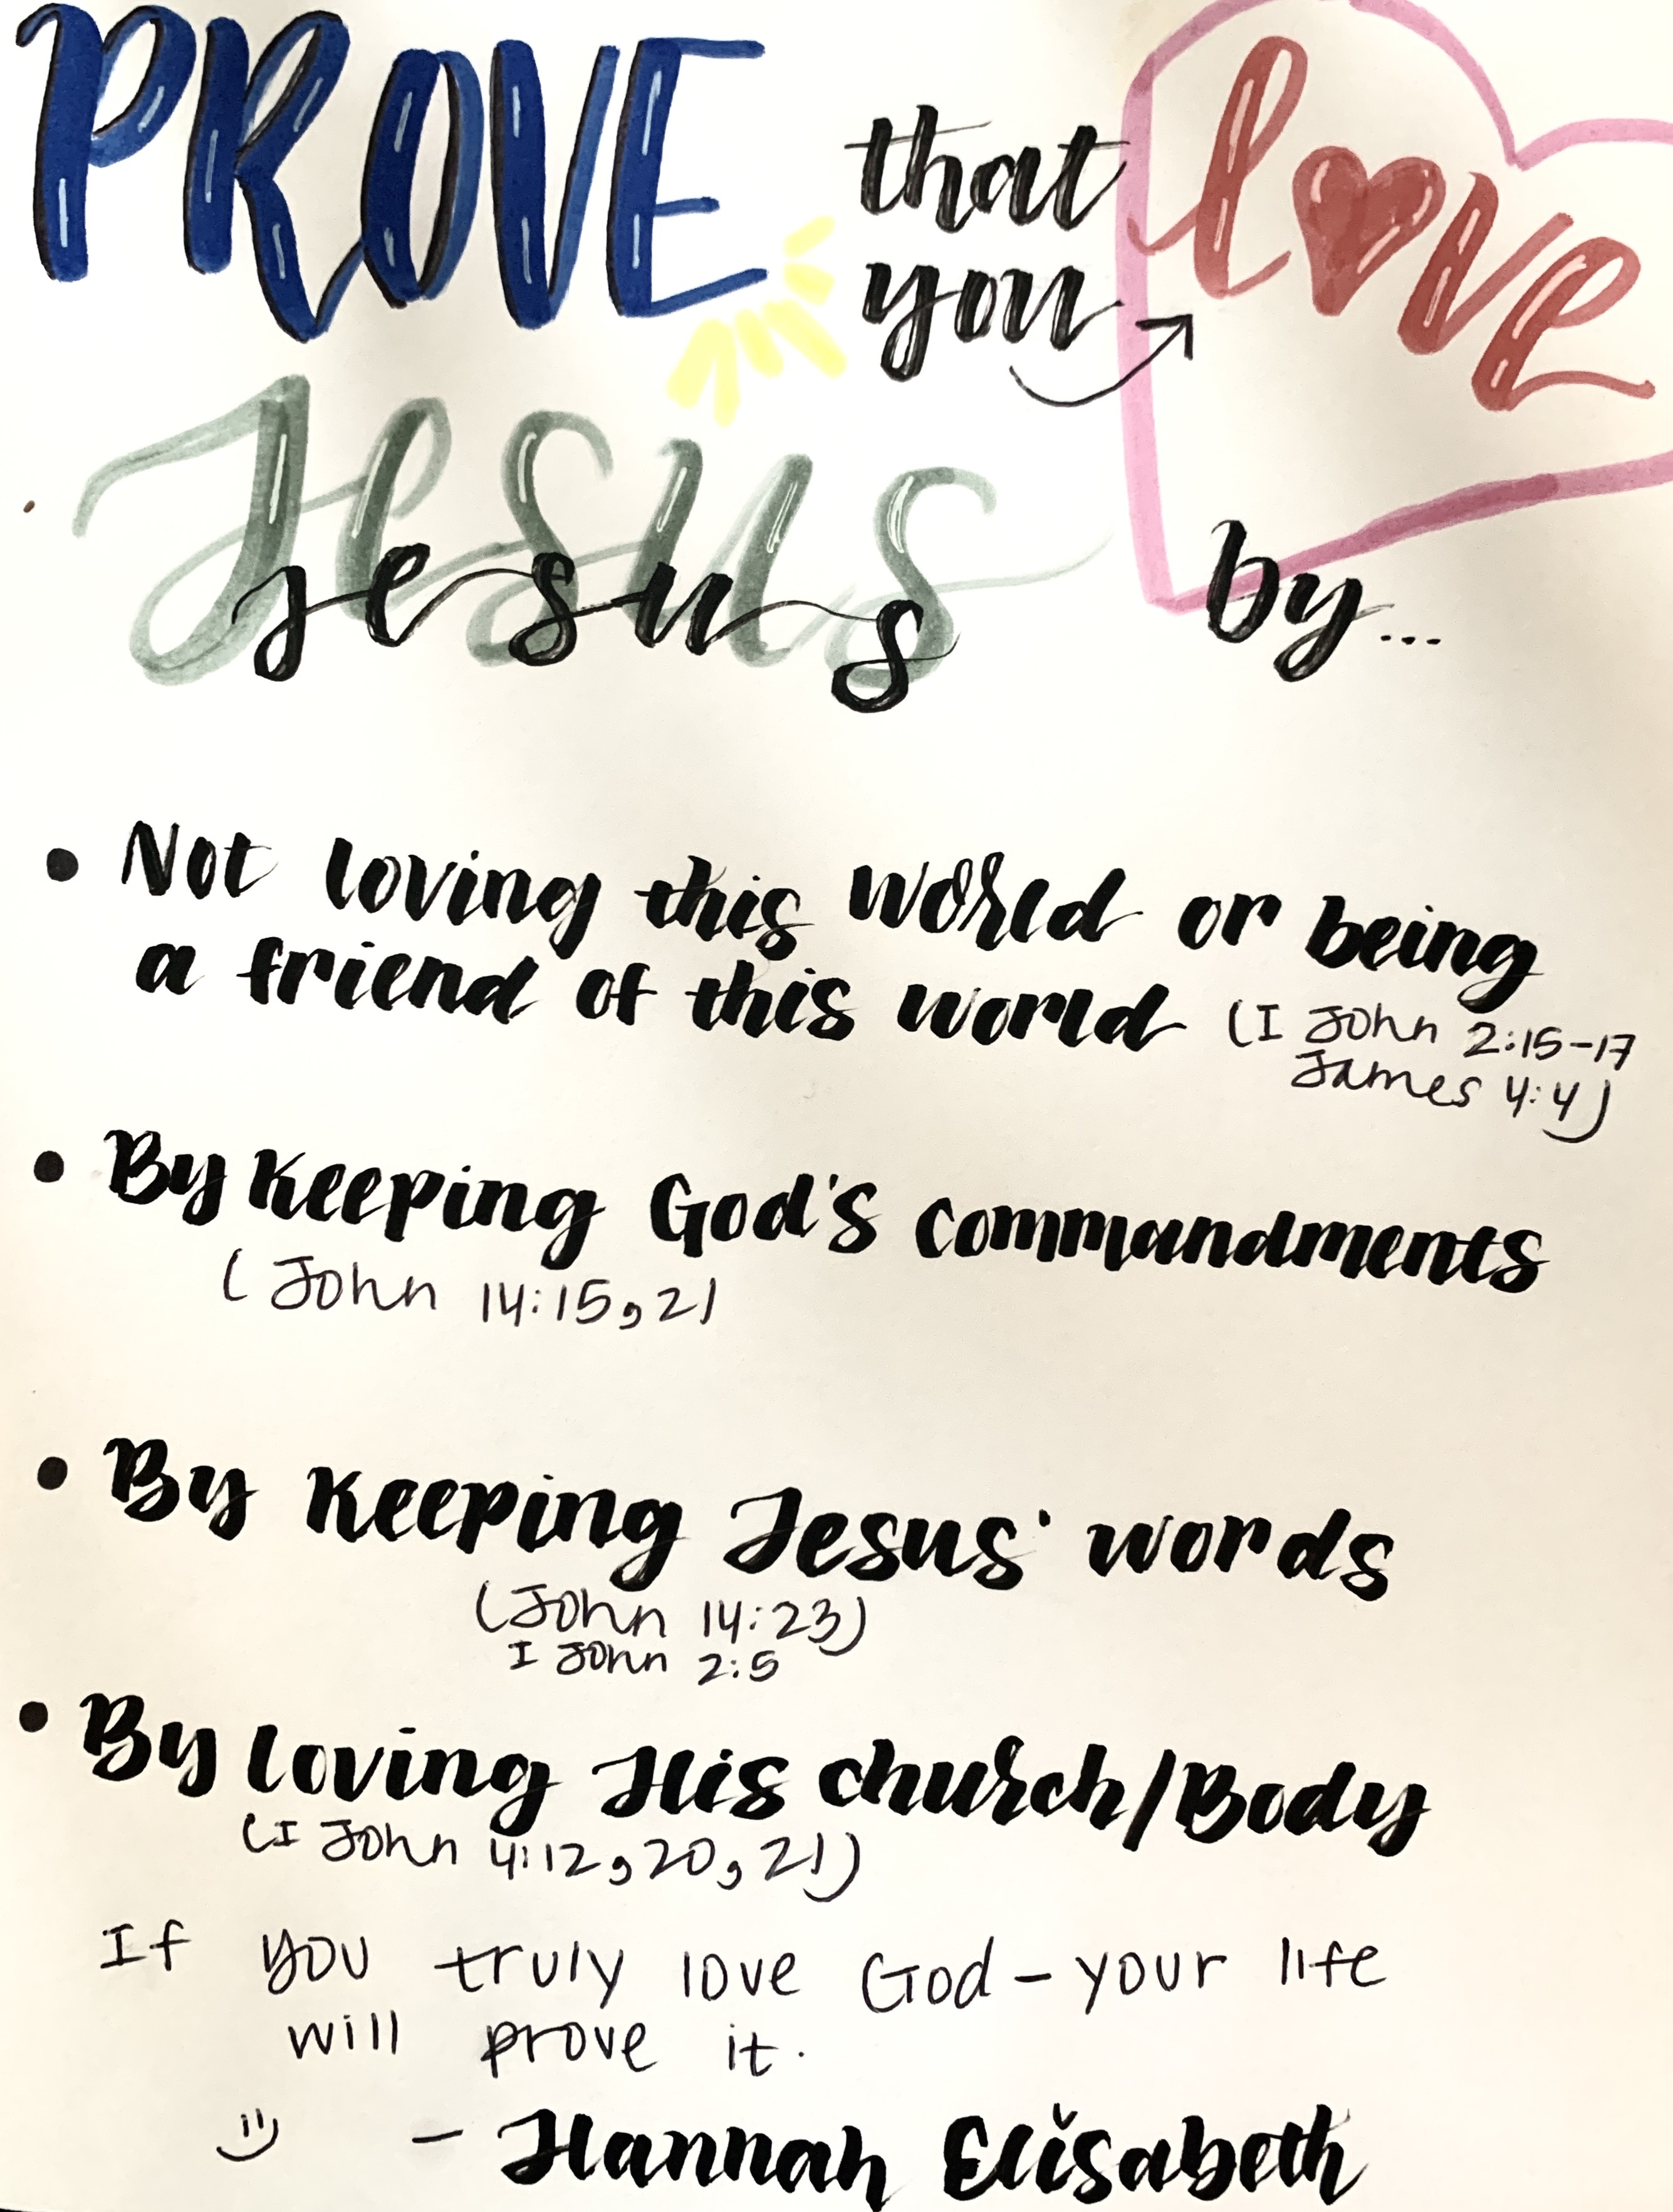 PROVE that you love
Jesus
Jesus by...
• Not loving this world or being
a friend of this world (I John 2:15-17
James 4:4)
• By keeping God's commandments
(John 14:15,21
• By keeping Jesus' words
(John 14:23)
I John 2:5
• By loving His church/Body
(I John 4:12,20,21)
If you truly love God - your life
will prove it.
- Hannah Elisabeth